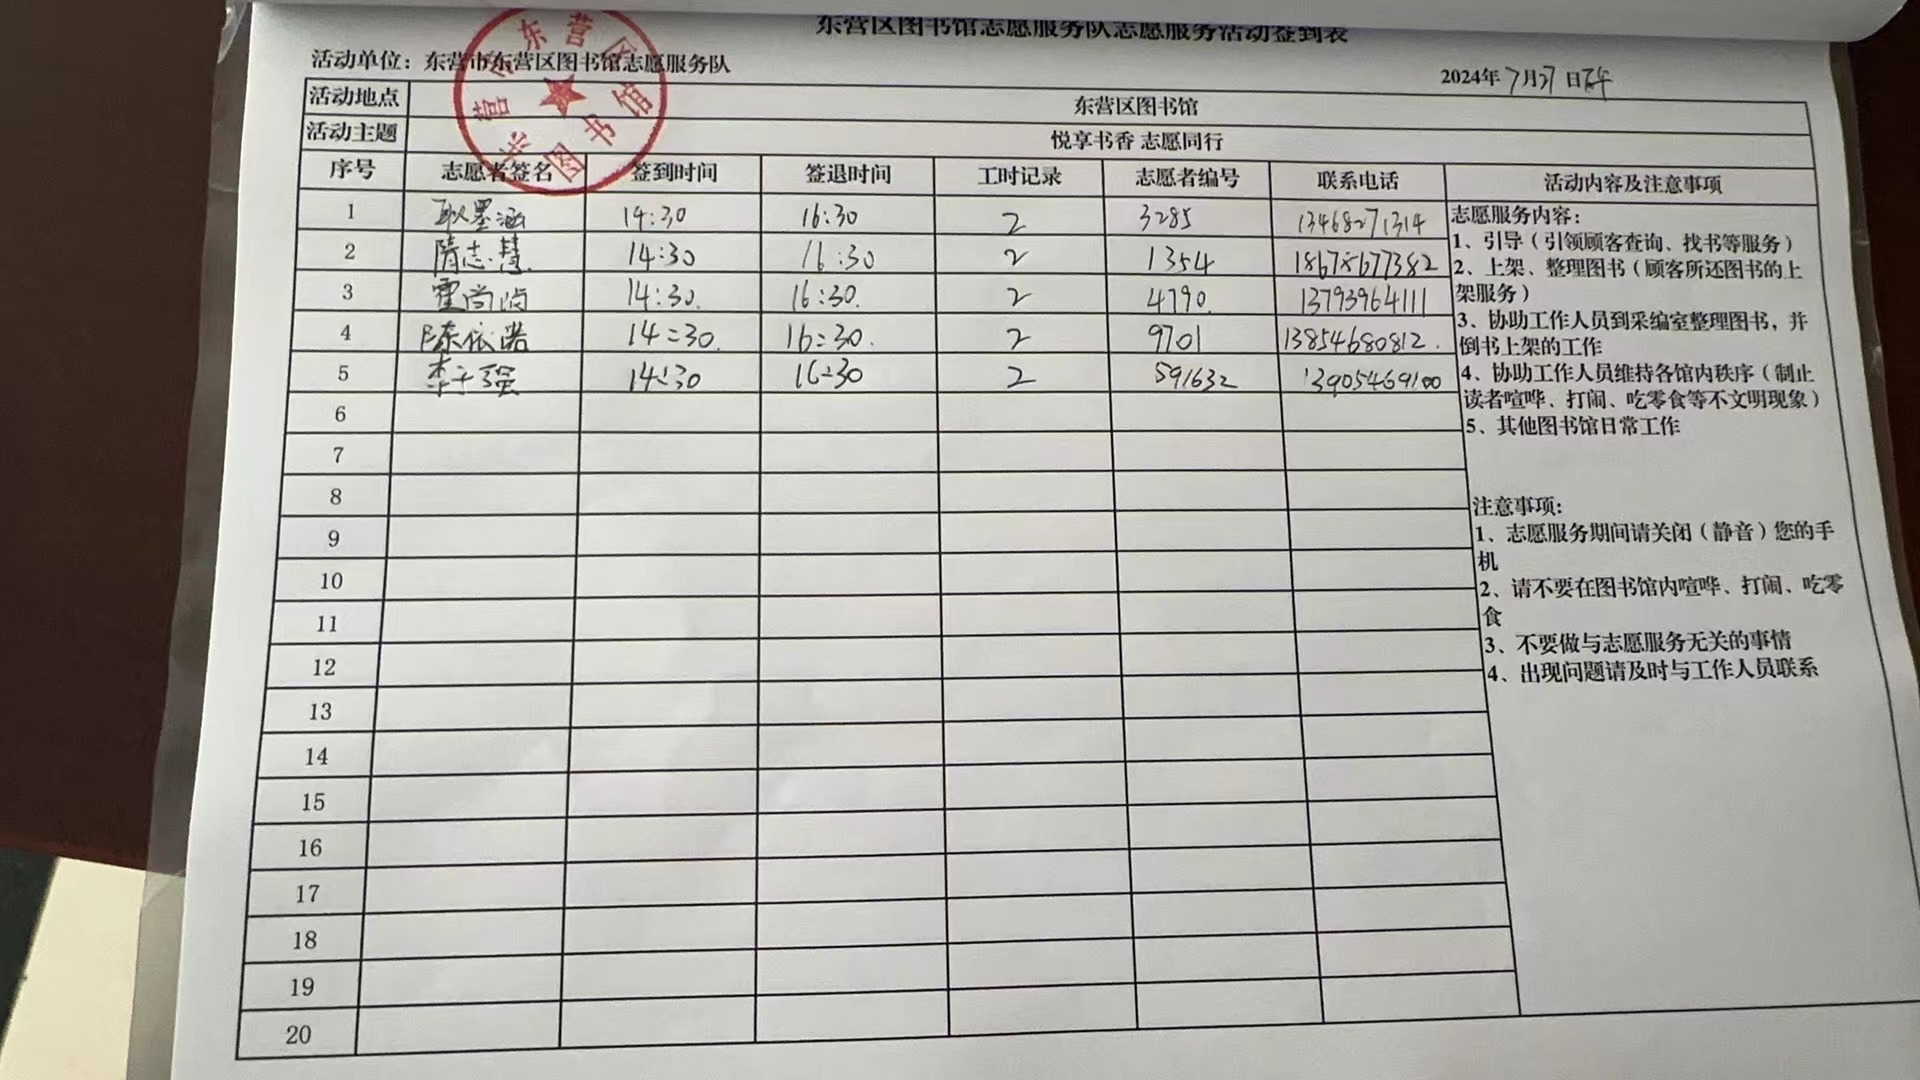 东营区图书馆志愿服务队志愿服务活动签到表
活动单位：东营市东营区图书馆志愿服务队
2024年7月27日
活动地点 东营区图书馆
活动主题 悦享书香 志愿同行
序号 志愿者签名 签到时间 签退时间 工时记录 志愿者编号 联系电话 活动内容及注意事项
1 耿墨涵 14:30 16:30 2 3285 13468271314
2 隋志慧 14:30 16:30 2 1354 18678677382
3 霍尚 14:30 16:30 2 4790 13793964111
4 陈依诺 14:30 16:30 2 9701 13854680812
5 李子强 14:30 16:30 2 591632 13905469100
6
7
8
9
10
11
12
13
14
15
16
17
18
19
20
志愿服务内容：
1、引导（引领顾客查询、找书等服务）
2、上架、整理图书（顾客所还图书的上
架服务）
3、协助工作人员到采编室整理图书，并
倒书上架的工作
4、协助工作人员维持各馆内秩序（制止
读者喧哗、打闹、吃零食等不文明现象）
5、其他图书馆日常工作
注意事项：
1、志愿服务期间请关闭（静音）您的手
机
2、请不要在图书馆内喧哗、打闹、吃零
食
3、不要做与志愿服务无关的事情
4、出现问题请及时与工作人员联系